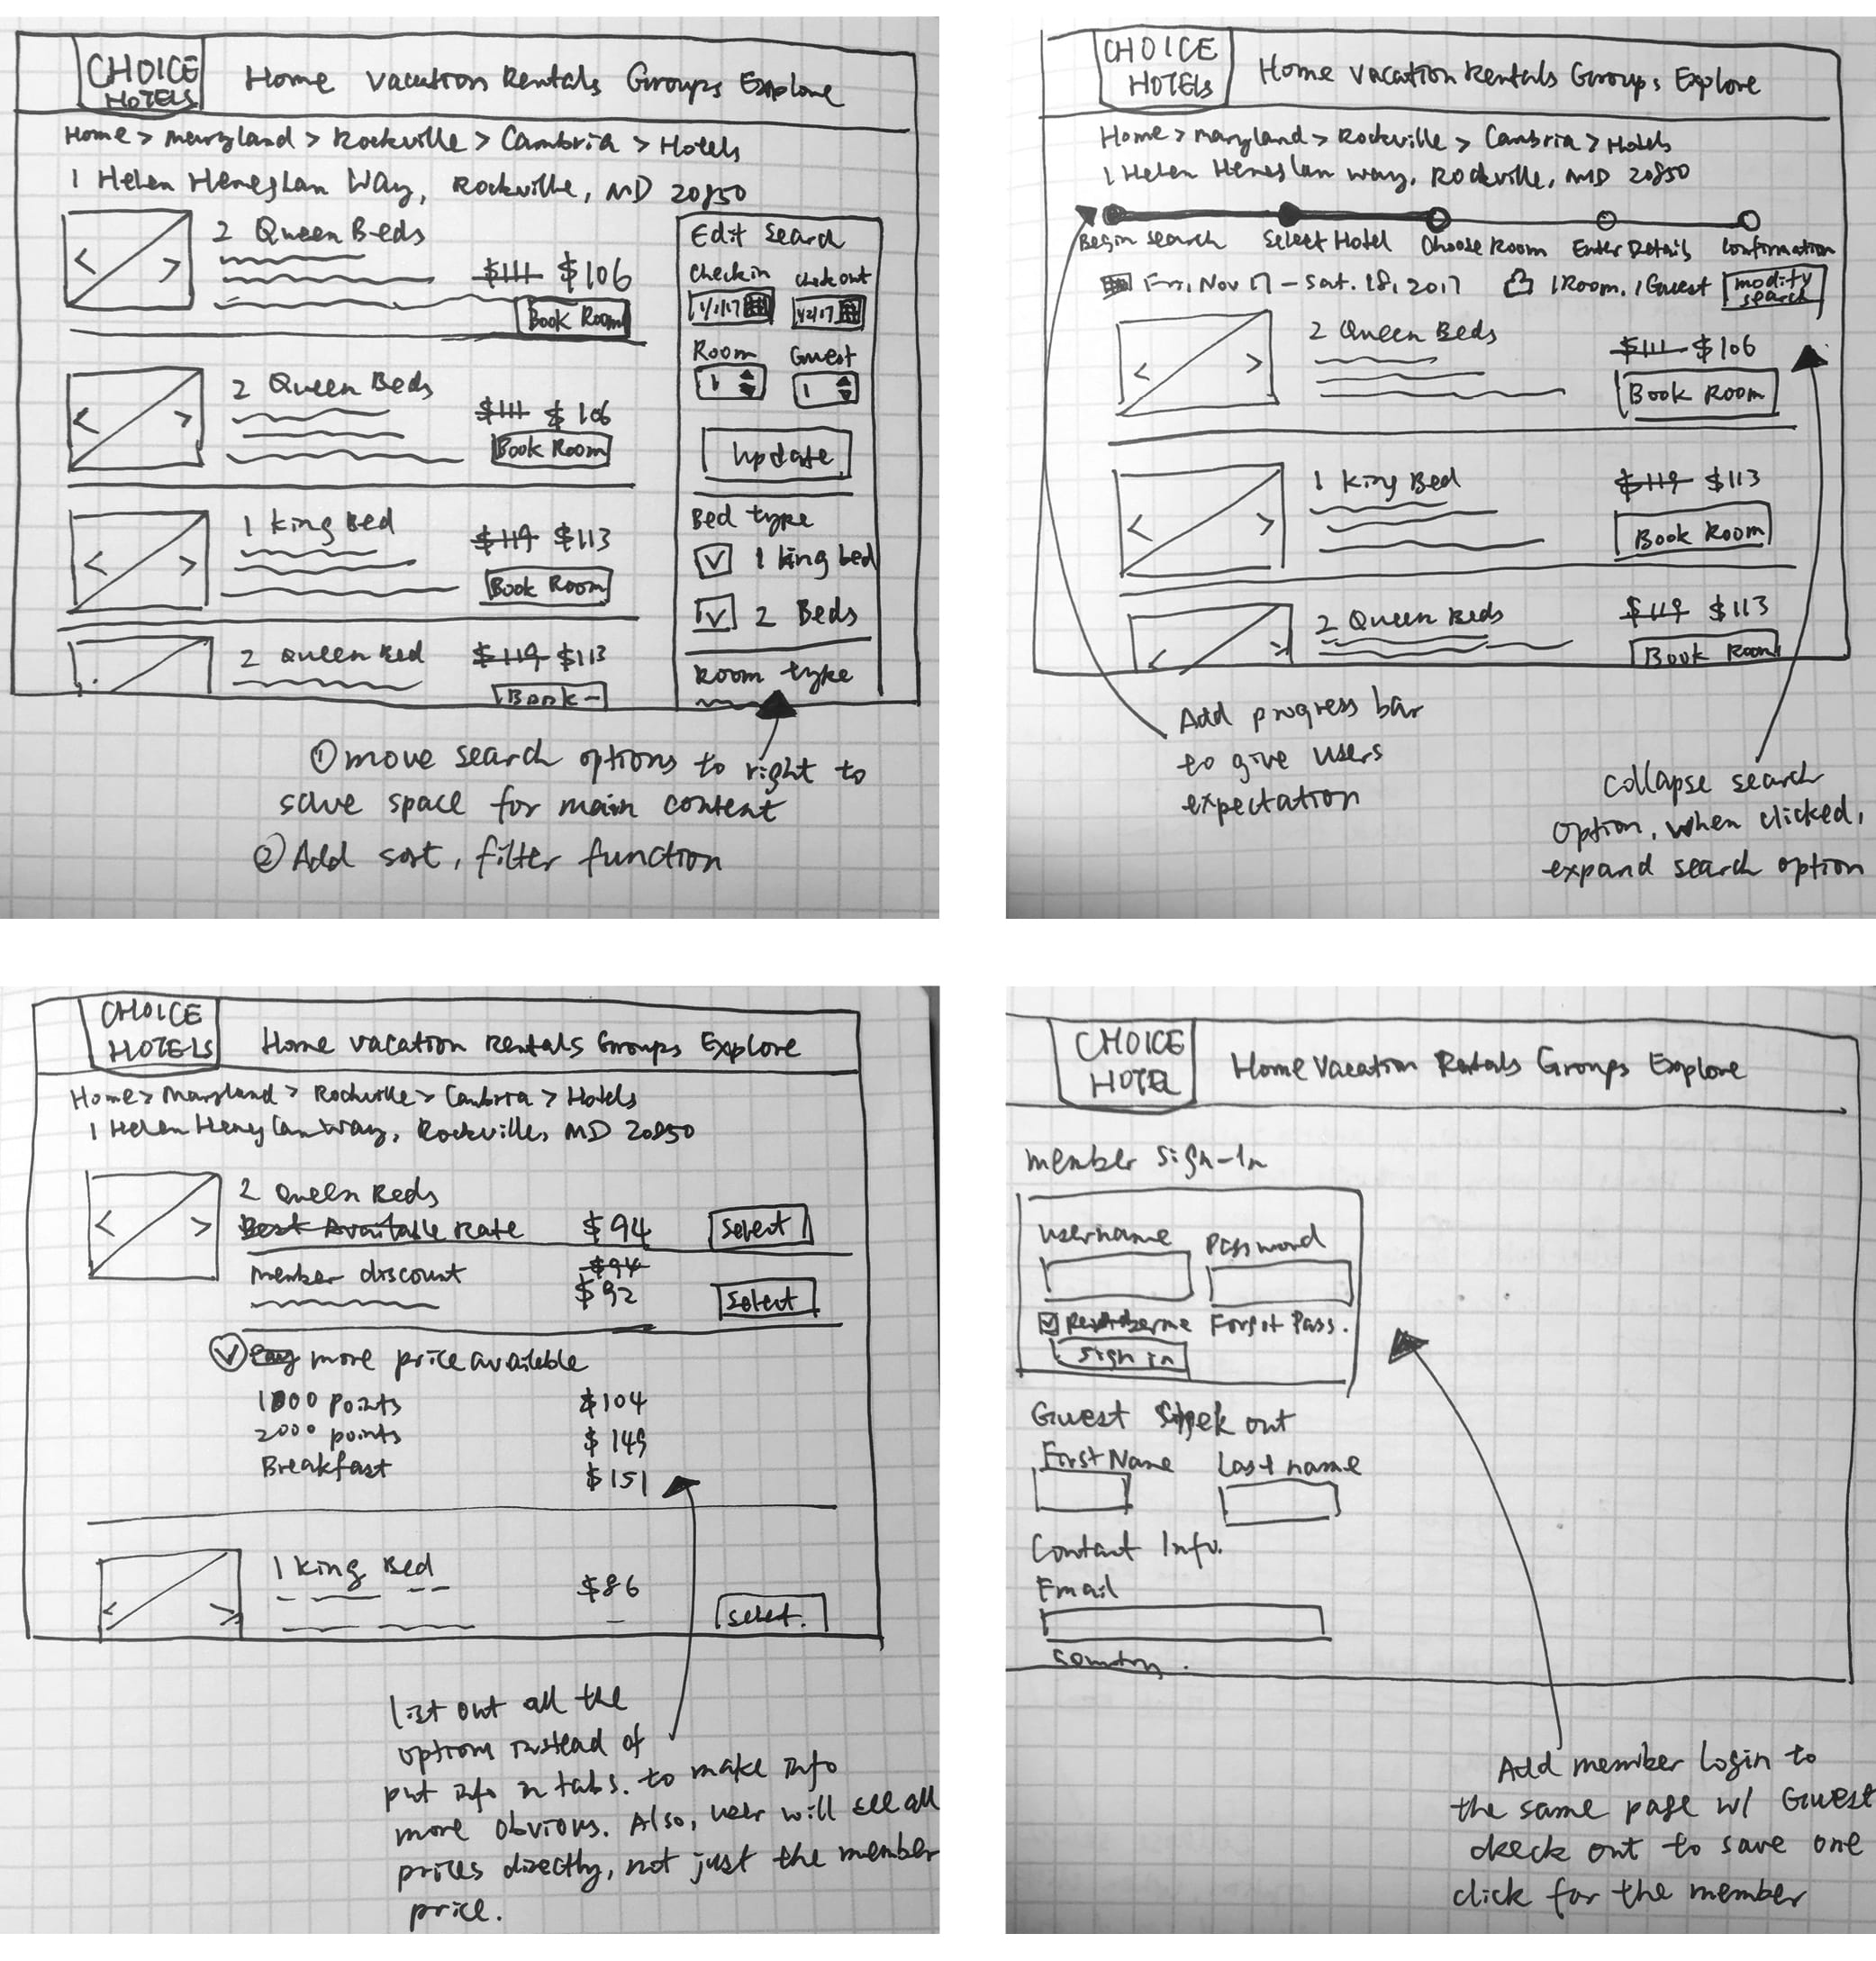 CHOICE
HOTELS
Home Vacation Rentals Groups Explore
Home > Maryland > Rockville > Cambria > Hotels
1 Helen Heneghan Way, Rockville, MD 20850
2 Queen Beds
$111 $106
Book Room
2 Queen Beds
$111 $106
Book Room
1 King Bed
$119 $113
Book Room
2 Queen Bed
$119 $113
Book
Edit Search
Check in Check out
1/1/17 1/2/17
Room Guest
1 1
Update
Bed type
1 King bed
2 Beds
Room type
① move search options to right to
save space for main content
② Add sort, filter function
CHOICE
HOTELS
Home Vacation Rentals Groups Explore
Home > Maryland > Rockville > Cambria > Hotels
1 Helen Heneghan Way, Rockville, MD 20850
Begin Search Select Hotel Choose Room Enter Details Confirmation
Fri, Nov 17 - Sat. 18, 2017 1 Room, 1 Guest modify
search
2 Queen Beds
$111 $106
Book Room
1 King Bed
$119 $113
Book Room
2 Queen Beds
$119 $113
Book Room
Add progress bar
to give users
expectation
Collapse search
option, when clicked,
expand search option
CHOICE
HOTELS
Home Vacation Rentals Groups Explore
Home > Maryland > Rockville > Cambria > Hotels
1 Helen Heneghan Way, Rockville, MD 20850
2 Queen Beds
Best Available Rate $94 Select
member discount $94
$92 Select
more price available
1000 Points $104
2000 points $149
Breakfast $151
1 King Bed
$86
Select
list out all the
options instead of
put info in tabs. to make info
more obvious. Also, user will see all
prices directly, not just the member
price.
CHOICE
HOTEL
Home Vacation Rentals Groups Explore
member sign-in
username Password
Remember me Forgot Pass.
sign in
Guest check out
First Name Last name
Contact Info.
Email
Country
Add member login to
the same page w/ Guest
check out to save one
click for the member